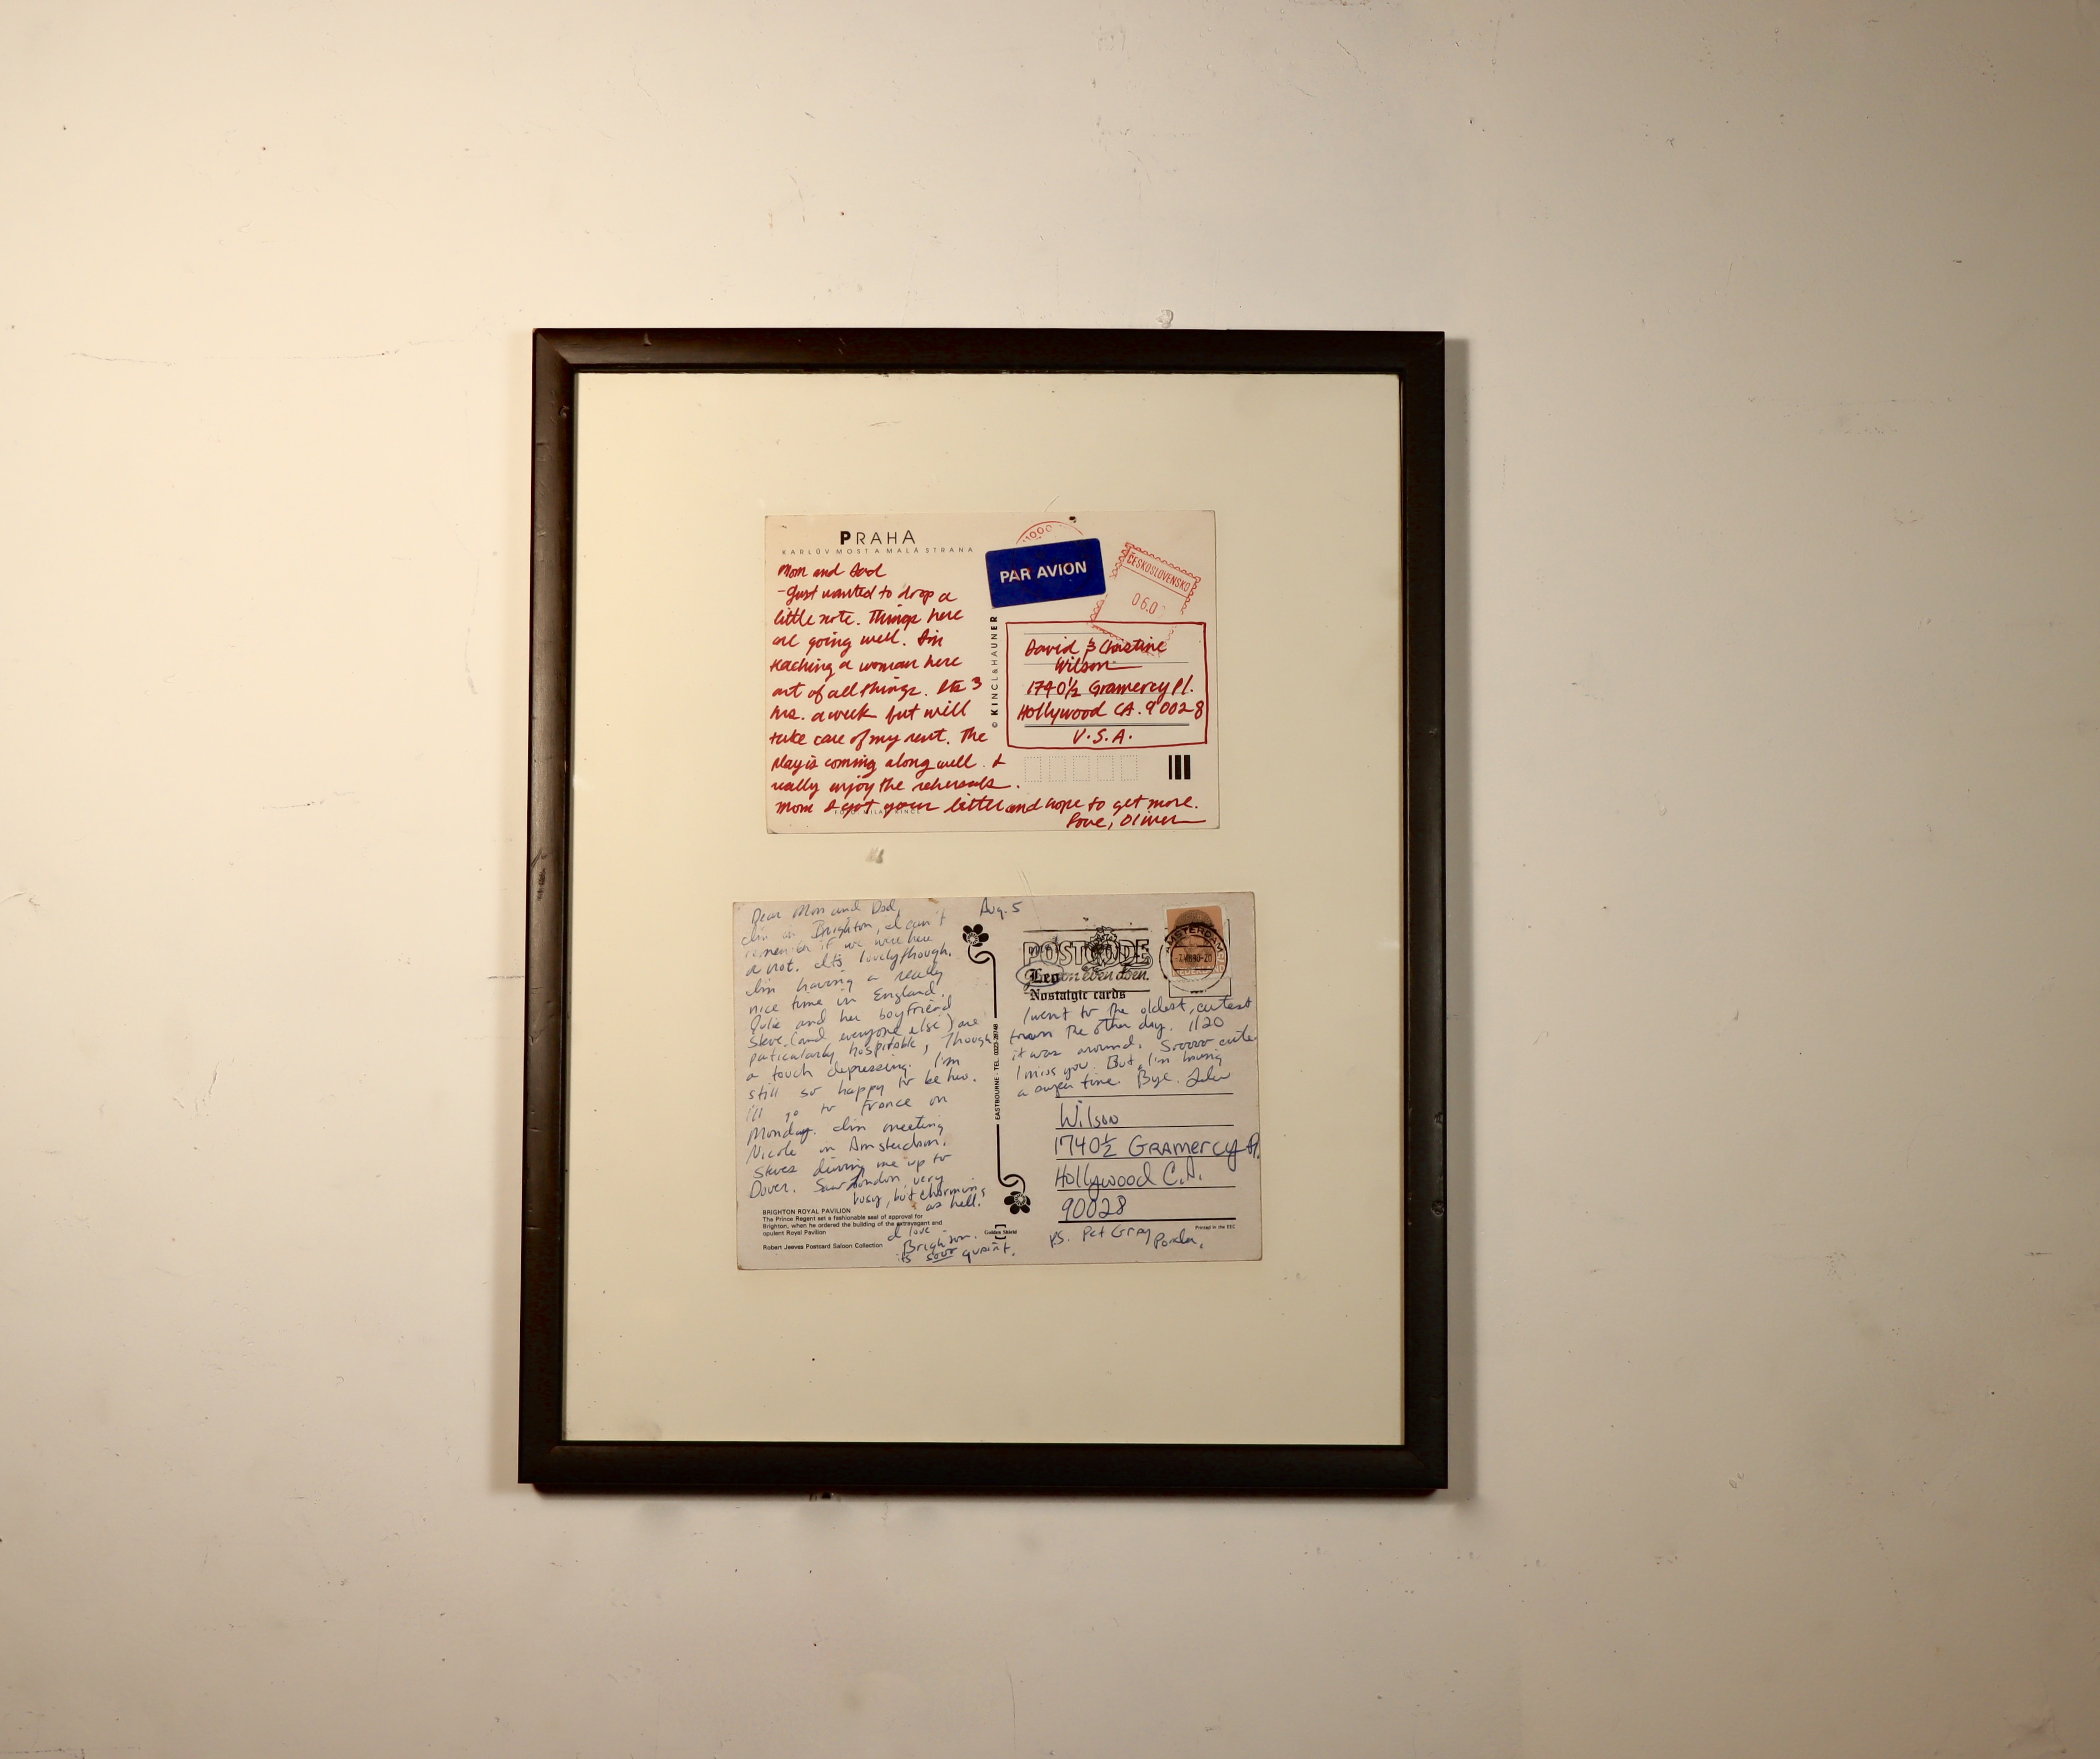 PRAHA
KARLŮV MOST A MALÁ STRANA
Mom and Dad
-Just wanted to drop a
little note. Things here
are going well. I'm
teaching a woman here
art of all things. Its 3
hrs. a week but will
take care of my rent. The
play is coming along well. I
really enjoy the rehersals.
Mom I got your letter and hope to get more.
Love, Oliver
© KINCL & HAUNER
PAR AVION
ČESKOSLOVENSKO
06.0
David & Christine
Wilson
1740½ Gramercy Pl.
Hollywood CA. 90028
U.S.A.
Dear Mom and Dad,
I'm in Brighton, I can't
remember if we were here
or not. It's lovely though.
I'm having a really
nice time in England.
Julie and her boyfriend
Steve, (and everyone else) are
paticularly hospitable, Though
a touch depressing. I'm
still so happy to be here.
i'll go to France on
Monday. I'm meeting
Nicole in Amsterdam.
Steves driving me up to
Dover. Saw London, very
busy, but charming
as hell.
I love
Brighton.
its sooo quaint.
BRIGHTON ROYAL PAVILION
The Prince Regent set a fashionable seal of approval for
Brighton, when he ordered the building of the extravagant and
opulent Royal Pavilion
Robert Jeeves Postcard Saloon Collection
EASTBOURNE - TEL.
Golden Shield
Aug. 5
POSTCODE
Leo
even doen.
Nostalgic cards
AMSTERDAM
I went to the oldest, cutest
town the other day. 1120
it was around. Sooooo cute.
I miss you. But, I'm having
a super time. Bye.
Wilson
1740½ Gramercy Pl.
Hollywood C.A.
90028
Printed in the EEC
P.S. Pet Gray